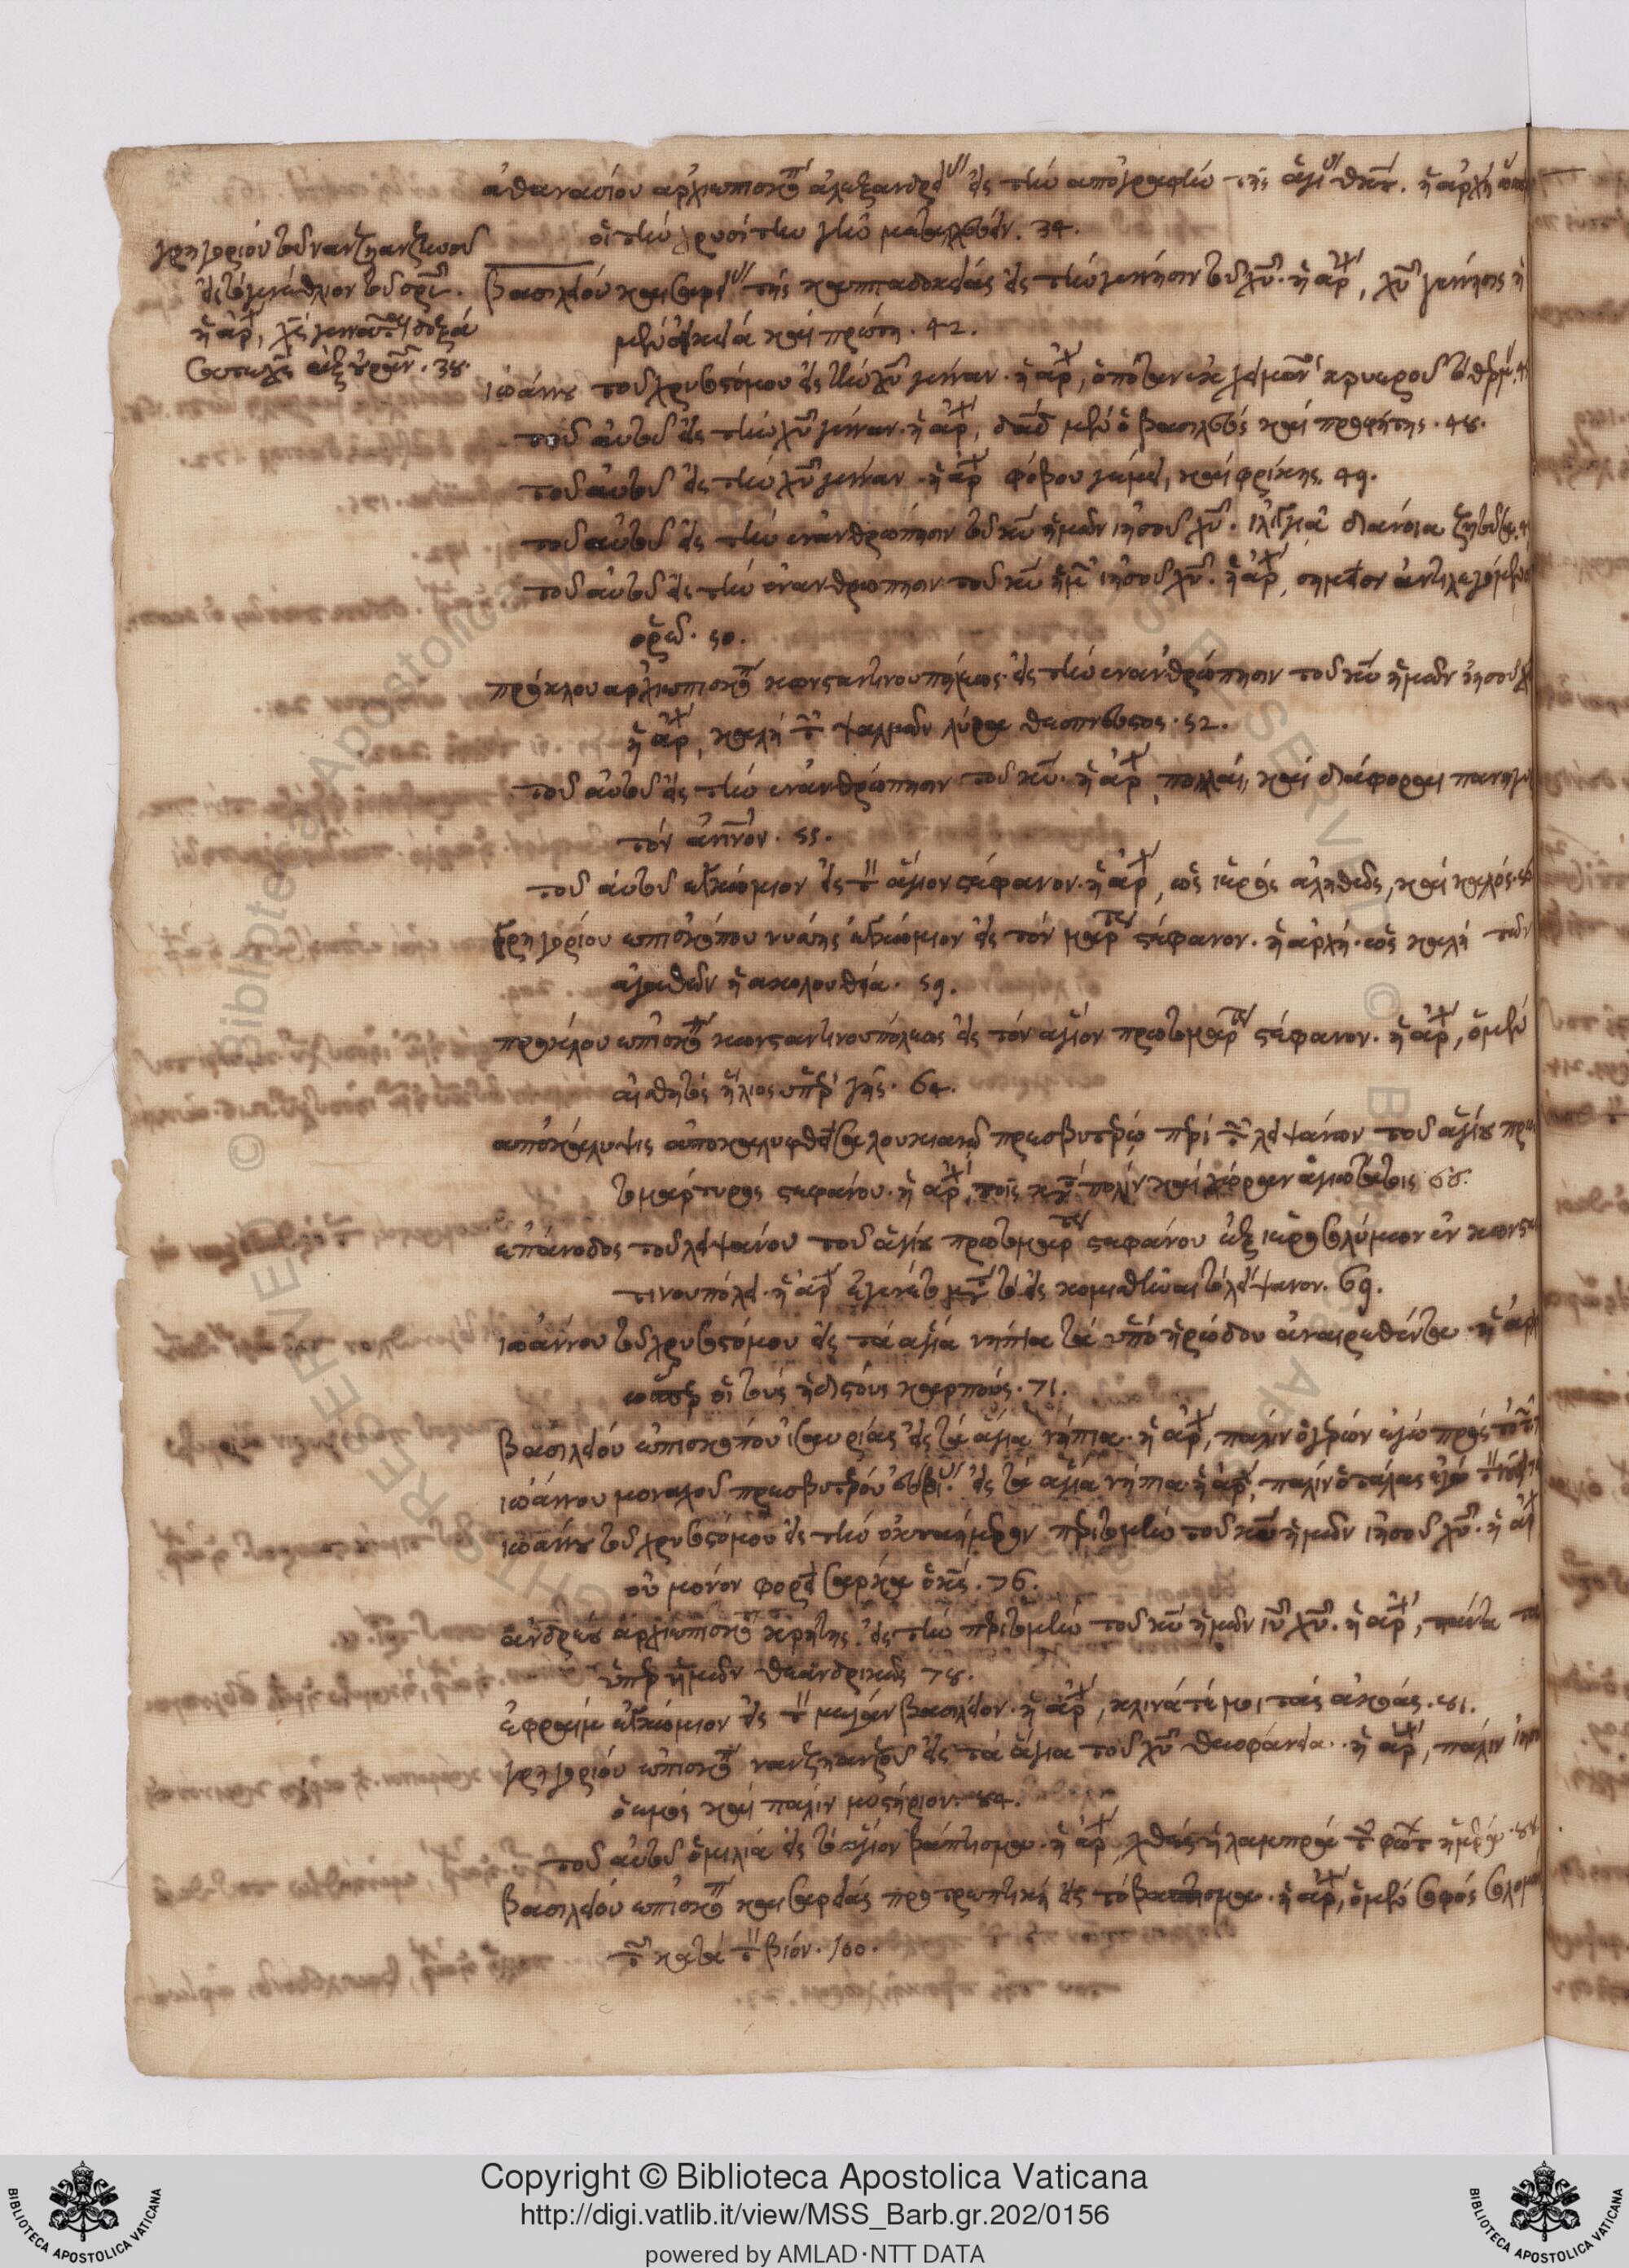 ἀθανασίου ἀρχιεπισκο^π ἀλεξανδρεί^ας εἰς τὴν ἀπογραφὴν τῆς ἁγί^ας θκου. ἡ ἀρχὴ
οἱ τὴν χρυσίτην γῆν μεταλλεύ. 34.
γρηγορίου τοῦ νανζηανζηνοῦ
εἰς τὸ γενέθλιον τοῦ σρς.
ἡ ἀρχ, χς γεννᾶται δοξά
σατε χς ἐξ οὐρανῶν. 38.
βασιλείου καισαρεί^ας τῆς καππαδοκείας εἰς τὴν γέννησιν τοῦ χυ. ἡ ἀρχ, χυ γέννησις ἡ
μὲν οἰκεία καὶ πρώτη. 42.
ἰωάννου τοῦ χρυσοστόμου εἰς τὴν χυ γένναν. ἡ ἀρχ, ὁπόταν ἐκ χειμῶνος κρυεροῦ
τοῦ αὐτοῦ εἰς τὴν χυ γένναν. ἡ ἀρχ, δαδ μὲν ὁ βασιλεὺς καὶ προφήτης. 48.
τοῦ αὐτοῦ εἰς τὴν χυ γένναν. ἡ ἀρχ φόβου γέμει, καὶ φρίκης. 49.
τοῦ αὐτοῦ εἰς τὴν ἐνανθρώπησιν τοῦ κυ ἡμῶν ἰησοῦ χυ. διάνοια
τοῦ αὐτοῦ εἰς τὴν ἐνανθρώπησιν τοῦ κυ ἡμῶν ἰησοῦ χυ. ἡ ἀρχ, σημεῖον ἀντιλεγόμενον
ὁρῶ. 50.
πρόκλου ἀρχιεπισκο^π κωνσταντινουπόλεως εἰς τὴν ἐνανθρώπησιν τοῦ κυ ἡμῶν ἰησοῦ χυ
ἡ ἀρχ, καλὴ τῶν ψαλμῶν λύρα θεόπνευστος. 52.
τοῦ αὐτοῦ εἰς τὴν ἐνανθρώπησιν τοῦ κυ. ἡ ἀρχ, πολλαὶ, καὶ διάφοραι πανηγύ
τὸν ανινον. 55.
τοῦ αὐτοῦ ἐγκώμιον εἰς τὸν ἅγιον στέφανον. ἡ ἀρχ, ὡς ἱερὸς ἀληθῶς, καὶ καλός.
γρηγορίου ἐπισκόπου νύσης ἐγκώμιον εἰς τὸν μαρ^τυ στέφανον. ἡ ἀρχή. ὡς καλὴ τῶν
ἀγαθῶν ἡ ἀκολουθία. 59.
πρόκλου ἐπισκο^π κωνσταντινουπόλεως εἰς τὸν ἅγιον πρωτομαρ^τυ στέφανον. ἡ ἀρχ, ὁ μὲν
αἰσθητὸς ἥλιος ὑπὲρ γῆς. 64.
ἀποκάλυψις ἀποκαλυφθεῖσα λουκιανῷ πρεσβυτέρῳ περὶ τῶν λειψάνων τοῦ ἁγίου πρω
τομάρτυρος στεφάνου. ἡ ἀρχ, τοῖς κατὰ πόλιν καὶ χώραν ἁγιωτάτοις 68.
ἐπάνοδος τοῦ λειψάνου τοῦ ἁγίου πρωτομαρ^τυ στεφάνου ἐξ ἱεροσολύμων ἐν κωνσταν
τινουπόλει. ἡ ἀρχ ἐγένετο μετὰ τὸ εἰσκομισθῆναι τὸ λείψανον. 69.
ἰωάννου τοῦ χρυσοστόμου εἰς τὰ ἅγια νήπια τὰ ὑπὸ ἡρώδου ἀναιρεθέντα. ἡ ἀρχ
ὥσπερ οἱ τοὺς ἡδίστους καρπούς. 71.
βασιλείου ἐπισκόπου ἰσαυρίας εἰς τὰ ἅγια νήπια. ἡ ἀρχ, πάλιν ὁ χρεών ἐγὼ πρὸς
ἰωάννου μοναχοῦ πρεσβυτέρου εὐβοί^ας εἰς τὰ ἅγια νήπια. ἡ ἀρχ, πάλιν ὁ τάλας ἐγὼ
ἰωάννου τοῦ χρυσοστόμου εἰς τὴν ὀκταήμερον περιτομὴν τοῦ κυ ἡμῶν ἰησοῦ χυ. ἡ ἀρχ
οὐ μόνον φορεῖ σάρκα ὁ κς. 76.
ἀνδρέου ἀρχιεπισκο^π κρήτης. εἰς τὴν περιτομὴν τοῦ κυ ἡμῶν ιυ χυ. ἡ ἀρχ, πάντα τὰ
ὑπὲρ ἡμῶν θεανδρικῶς 78.
ἐφραὶμ ἐγκώμιον εἰς τὸν μέγαν βασίλειον. ἡ ἀρχ, κλίνατέ μοι τὰς ἀκοάς. 81.
γρηγορίου ἐπισκο^π νανζηανζοῦ εἰς τὰ ἅγια τοῦ χυ θεοφάνεια. ἡ ἀρχ, πάλιν ἰησ
ὁ ἐμός καὶ πάλιν μυστήριον. 84.
τοῦ αὐτοῦ ὁμιλία εἰς τὸ ἅγιον βάπτισμα. ἡ ἀρχ, χθὲς ἡ λαμπρᾷ τῶν φώτων ἡμέρᾳ. 88
βασιλείου ἐπισκο^π καισαρείας προτρεπτικὴ εἰς τὸ βάπτισμα. ἡ ἀρχ, ὁ μὲν σοφὸς σολομῶ
τῶν κατὰ τὸν βίον. 100.
Copyright © Biblioteca Apostolica Vaticana
http://digi.vatlib.it/view/MSS_Barb.gr.202/0156
powered by AMLAD·NTT DATA
BIBLIOTECA APOSTOLICA VATICANA
BIBLIOTECA APOSTOLICA VATICANA